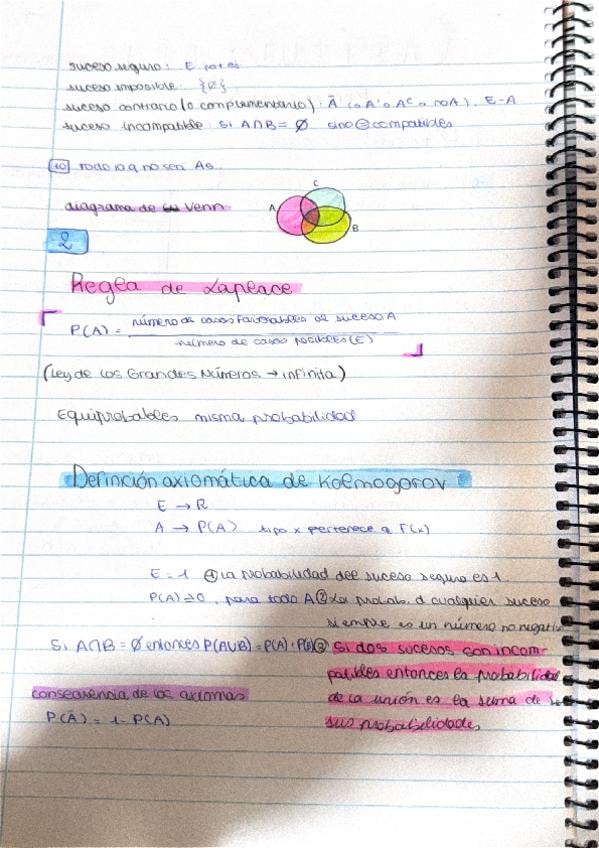 suceso seguro: E
suceso imposible: {Ø}
suceso contrario (o complementario): Ā (o A' o Aᶜ o noA), E-A
suceso incompatible: si A∩B = Ø sino ⊖ compatibles
10 todo lo q no sea As.
diagrama de Venn
C
A
B
2
Regla de Laplace
P(A) = número de casos favorables al suceso A
número de casos posibles (E)
(Ley de los Grandes Números → infinita)
Equiprobables misma probabilidad
Definición axiomática de Kolmogorov
E → R
A → P(A) tipo x pertenece a F(x)
E = 1 ① La probabilidad del suceso seguro es 1.
P(A) ≥ 0, para todo A ② La probab. d cualquier suceso
siempre es un número no negativ
Si A∩B = Ø entonces P(A∪B) = P(A) + P(B) ③ Si dos sucesos son incom-
patibles entonces la probabilidad
de la unión es la suma de
sus probabilidades
consecuencia de los axiomas
P(Ā) = 1 - P(A)